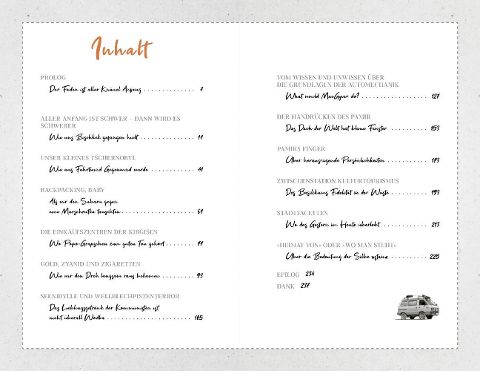 Inhalt
PROLOG
Der Faden ist aller Knäuel Anfang
ALLER ANFANG IST SCHWER – DANN WIRD ES
SCHWERER
Wie uns Bischkek gefangen hielt 11
UNSER KLEINES TSCHERNOBYL
Wie aus Fahrtwind Gegenwind wurde
BACKPACKING, BABY
Als wir den Sahara gegen
eine Marschrutka tauschten 51
DIE EINKAUFSZENTREN DER KIRGISEN
Wo zum guten Ton gehört
GOLD, ZYANID UND ZIGARETTEN
Wie wir den Dreh langsam raus bekamen 93
SEENIDYLLE UND WELLBLECHPISTENTERROR
Das Lieblingsgetränk der Kommunisten ist
nicht überall Wodka 105
VOM WISSEN UND UNWISSEN ÜBER
DIE GRUNDLAGEN DER AUTOMECHANIK
What would MacGyver do? 129
DER HÄNDRÜCKEN DES PAMIR
Das Dach der Welt hat kleine Fenster 153
PAMIRS FINGER
Über herausragende Persönlichkeiten 173
ZWISCHENSTATION KULTURTOURISMUS
Des Basilikums Fidelität in der Wüste 193
STADTFACETTEN
Wo das Gestern im Heute überlebt 213
»HEIMAT VON« ODER »WO MAN STEHT«
Über die Bedeutung der Silbe systems 225
EPILOG 234
DANK 238